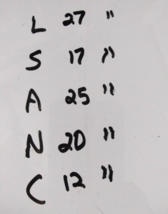 L 27 "
S 17 "
A 25 "
N 20 "
C 12 "